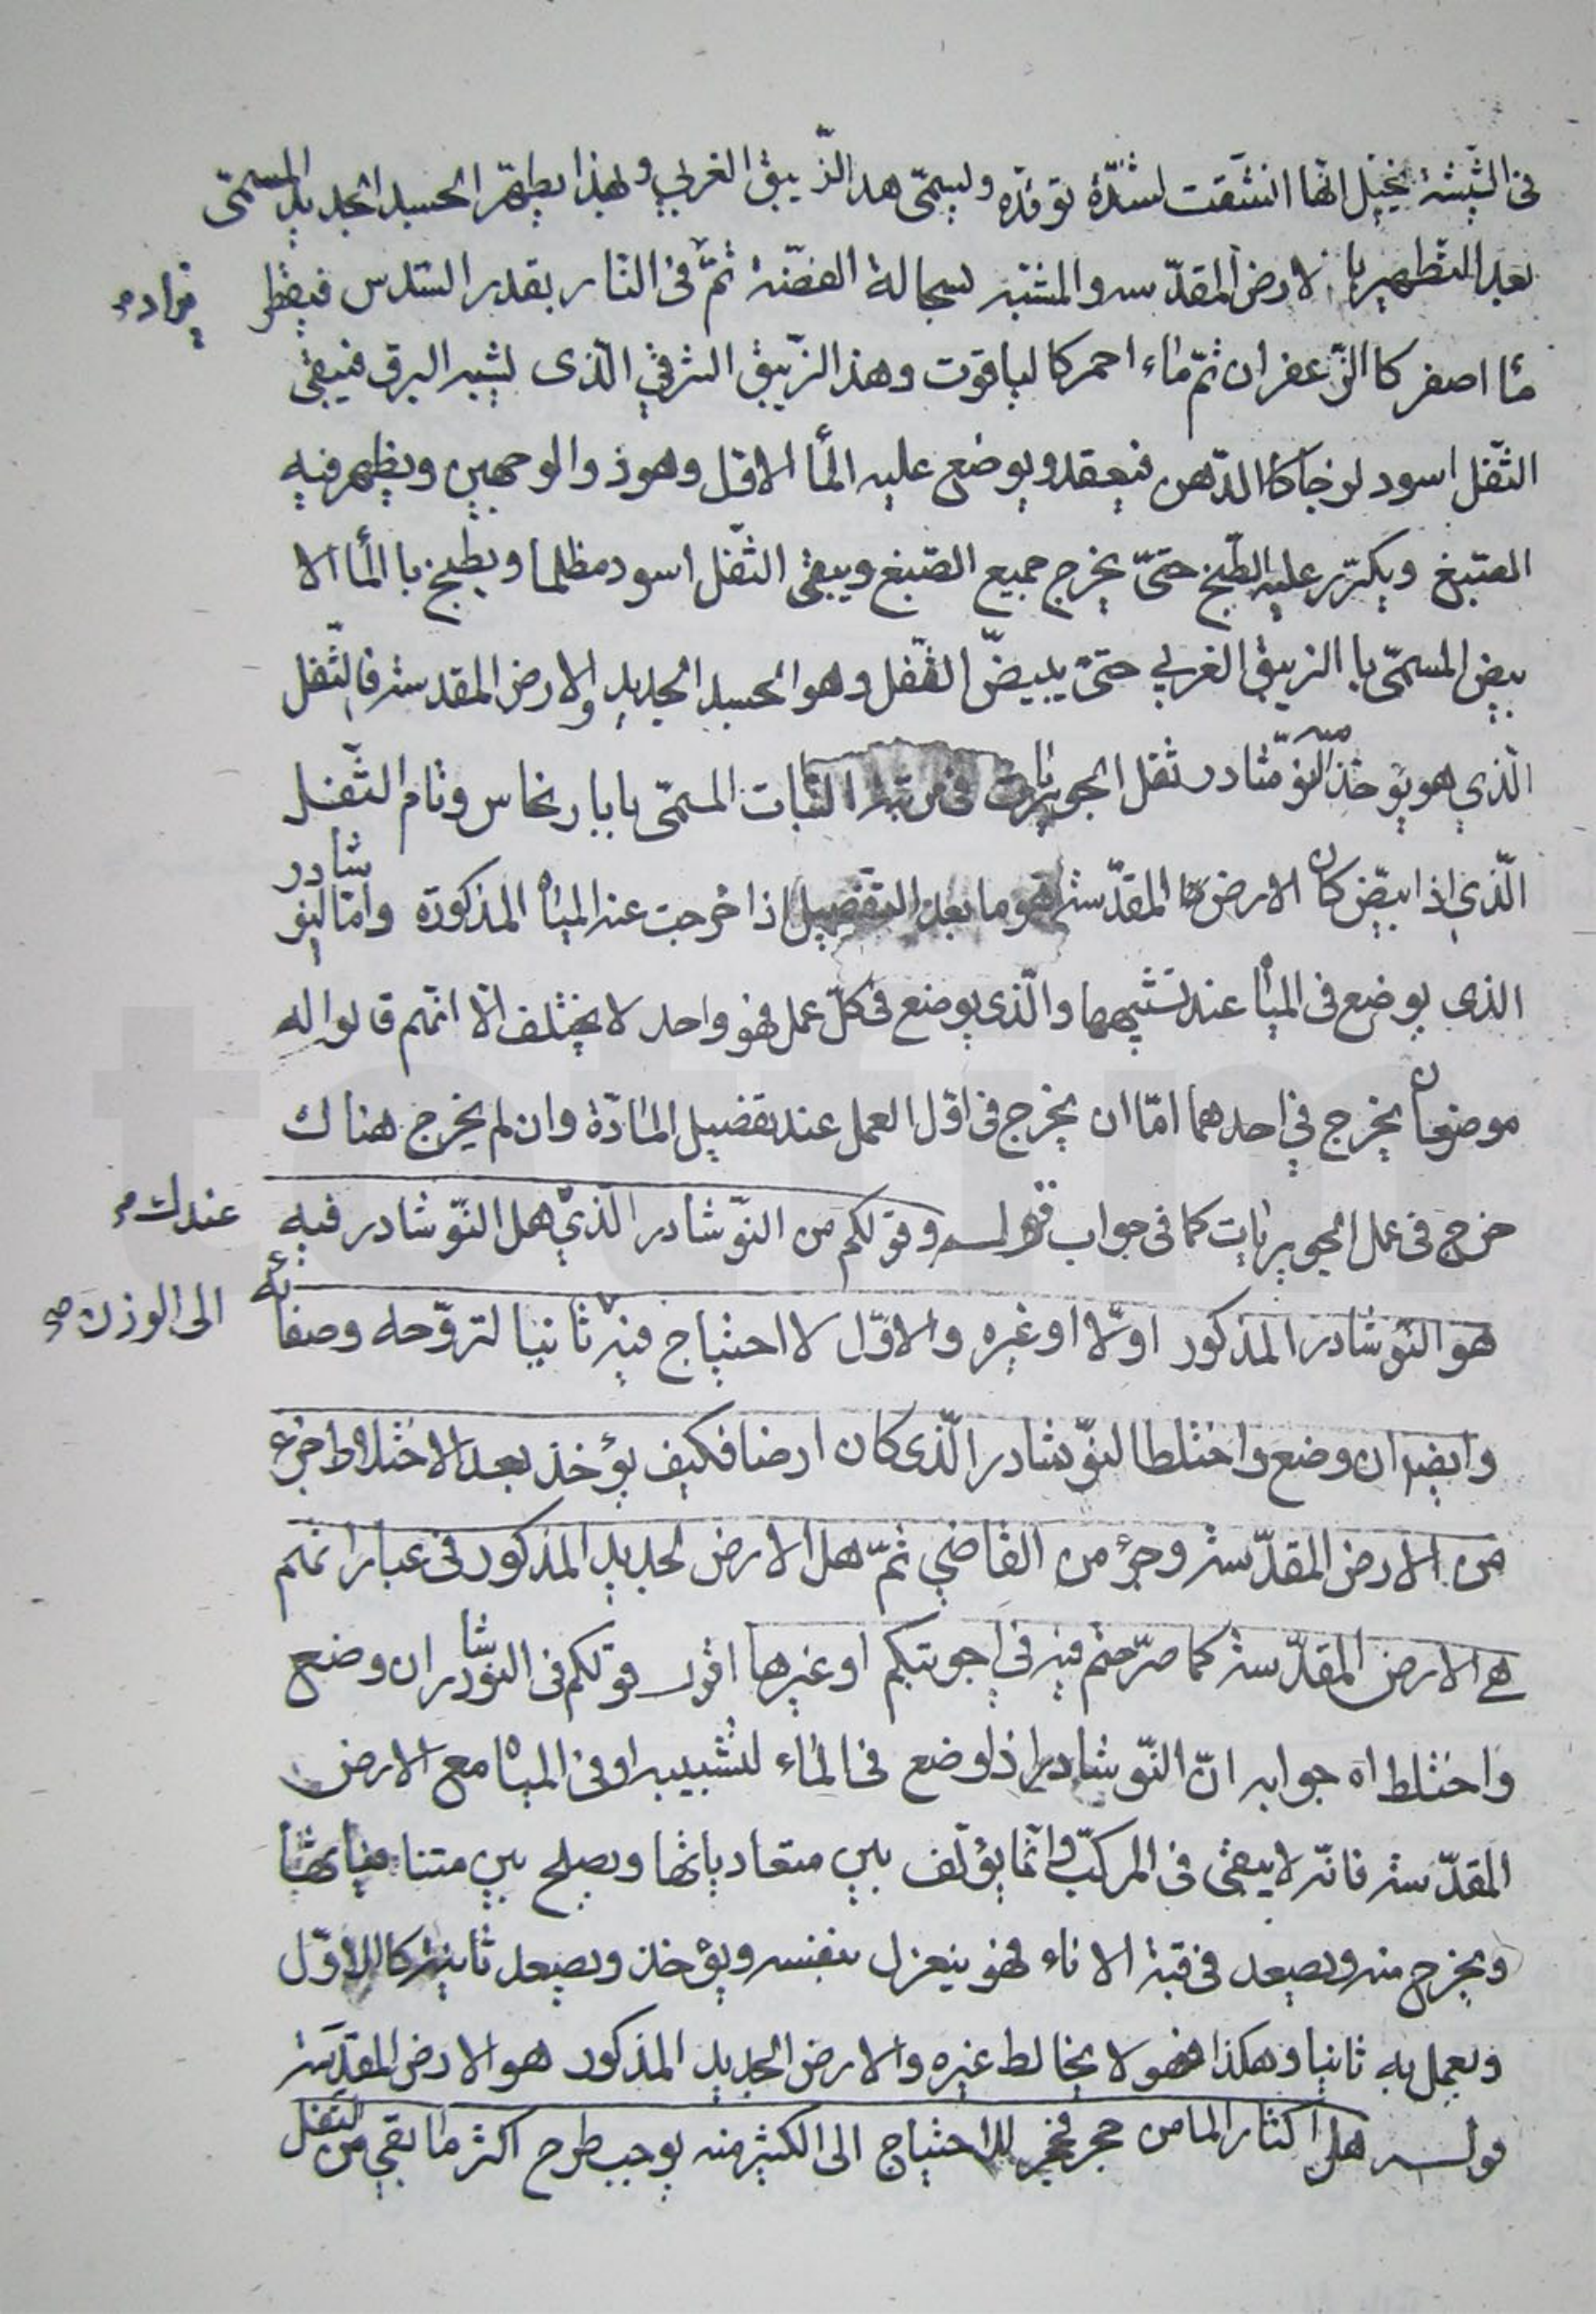 فى الشيشة يخيّل انّها انشقت لشدّة توقدّه ويسمّى هذا الزّيبق الغربي وبهذا يطهّر الجسد الجديد المسمّى
بعد التطهير با لارض المقدّسة والمشبّه بسحالة الفضّة ثمّ فى النار بقدر السّدس فيقطر
يزاد
مٰا اصفر كا الزّعفران ثمّ مٰاء احمر كا لياقوت وهذ الزّيبق الشرقي الّذى يشبه البرق فيبقى
الثّفل اسود لزجا كا الدّهن فيعقد ويوضع عليه المٰا الاوّل وهو ذو الوجهين ويظهر فيه
الصّبغ ويكرّر عليه الطّبخ حتّى يخرج جميع الصّبغ ويبقى الثّفل اسود مظلما ويطبخ با المٰا الا
بيض المسمّى با الزيبق الغربي حتّى يبيضّ الثّفل وهو الجسد الجديد والارض المقدسة فالثّفل
الّذي هو يؤخذ منه النّوشادر ثفل الجويزات فى مرتبة النبات المسمّى بابار نحاس وتام الثّفل
الّذي اذا ابيّض كان الارض المقدّسة هو ما بعد التّفصيل اذا خرجت عنه المياه المذكورة وامّا النّوشادر
الذى يوضع فى المياه عند تشبيبها والّذى يوضع فى كلّ عمل فهو واحد لا يختلف الّا انّهم قالوا له
موضعان يخرج في احدهما امّا ان يخرج فى اوّل العمل عند تفصيل المادّة وان لم يخرج هناك
خرج فى عمل الجويزات كما فى جواب قوله وقولكم من النّوشادر الّذي هل النّوشادر فيه
عندك
هو النّوشادر المذكور اوّلا او غيره والاوّل لا احتياج فيه ثانيا لتروّحه وصفائه
الى الوزن
وايضا ان وضع واختلط النّوشادر الّذى كان ارضا فكيف يؤخذ بعد الاختلاط جزء
من الارض المقدّسة وجزء من القاضي ثمّ هل الارض الجديد المذكور فى عباراتهم
هى الارض المقدّسة كما صرّحتم فيه في اجوبتكم او غيرها اقول قولكم فى النّوشادر ان وضع
واختلط اه جوابه انّ النّوشادر اذا وضع فى المٰاء لتشبيبه او فى المياه مع الارض
المقدّسة فانّه لا يبقى فى المركّب وانّما يؤلّف بين متعادياتها ويصلح بين متنافياتها
ويخرج منه ويصعد فى قبّة الاناء فهو ينعزل بنفسه ويؤخذ ويصعد ثانية كالاوّل
ويعمل به ثانيا وهكذا فهو لا يخالط غيره والارض الجديد المذكور هو الارض المقدّسة
قوله هل اكثار الما من حجر فحجر للاحتياج الى الكثير منه يوجب طرح اكثر ما بقي من الثفل